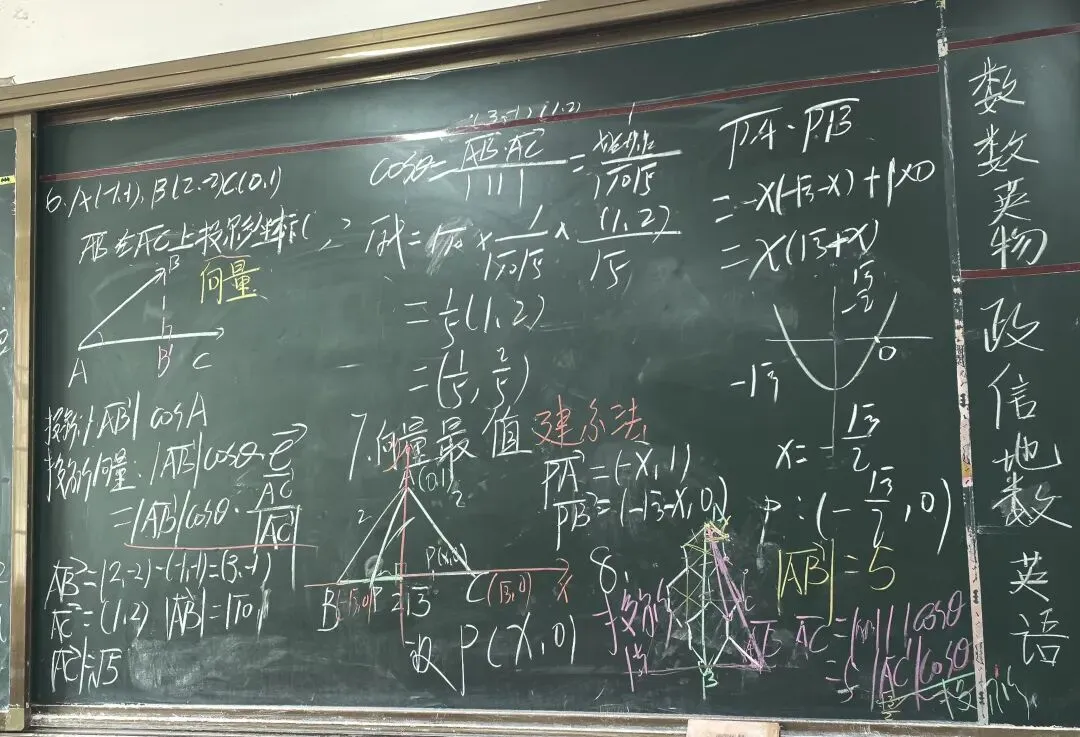 6. A(-1,-1), B(2,-2) C(0,1)
AB在AC上投影坐标( , )
向量
B
A B' C
投影: |AB| cosA
投影向量: |AB| cosθ · e
= |AB| cosθ · AC/|AC|
AB = (2,-2)-(-1,-1) = (3,-1)
AC = (1,2) |AB| = √10
|AC| = √5
(3,-1) (1,2)
cosθ = AB·AC/| || | = 1/√10√5
原式 = √10 × 1/√10√5 × (1,2)/√5
= 1/5(1,2)
= (1/5, 2/5)
7. 向量最值 建系法
(0,1)
2 2
P(x,0)
B (-√3,0) P 2√3 C (√3,0) x
设 P(x,0)
PA = (-x,1)
PB = (-√3-x,0)
PA · PB
= -x(-√3-x)+1×0
= x(√3+x)
-√3 0
x = -√3/2
P: (-√3/2, 0)
8.
投影
|AB| = 5
AB AC = | || | cosθ
= 5 |AC| cosθ
投影
数
数
英
物
政
信
地
数
英
语